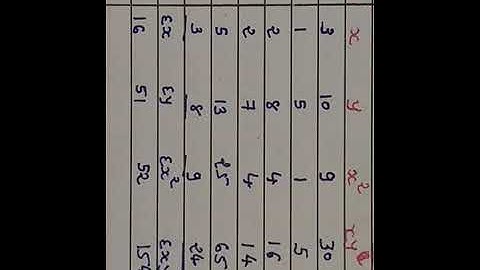 x y x² xy
3 10 9 30
1 5 1 5
2 8 4 16
2 7 4 14
5 13 25 65
3 8 9 24
Σx Σy Σx² Σxy
16 51 52 154